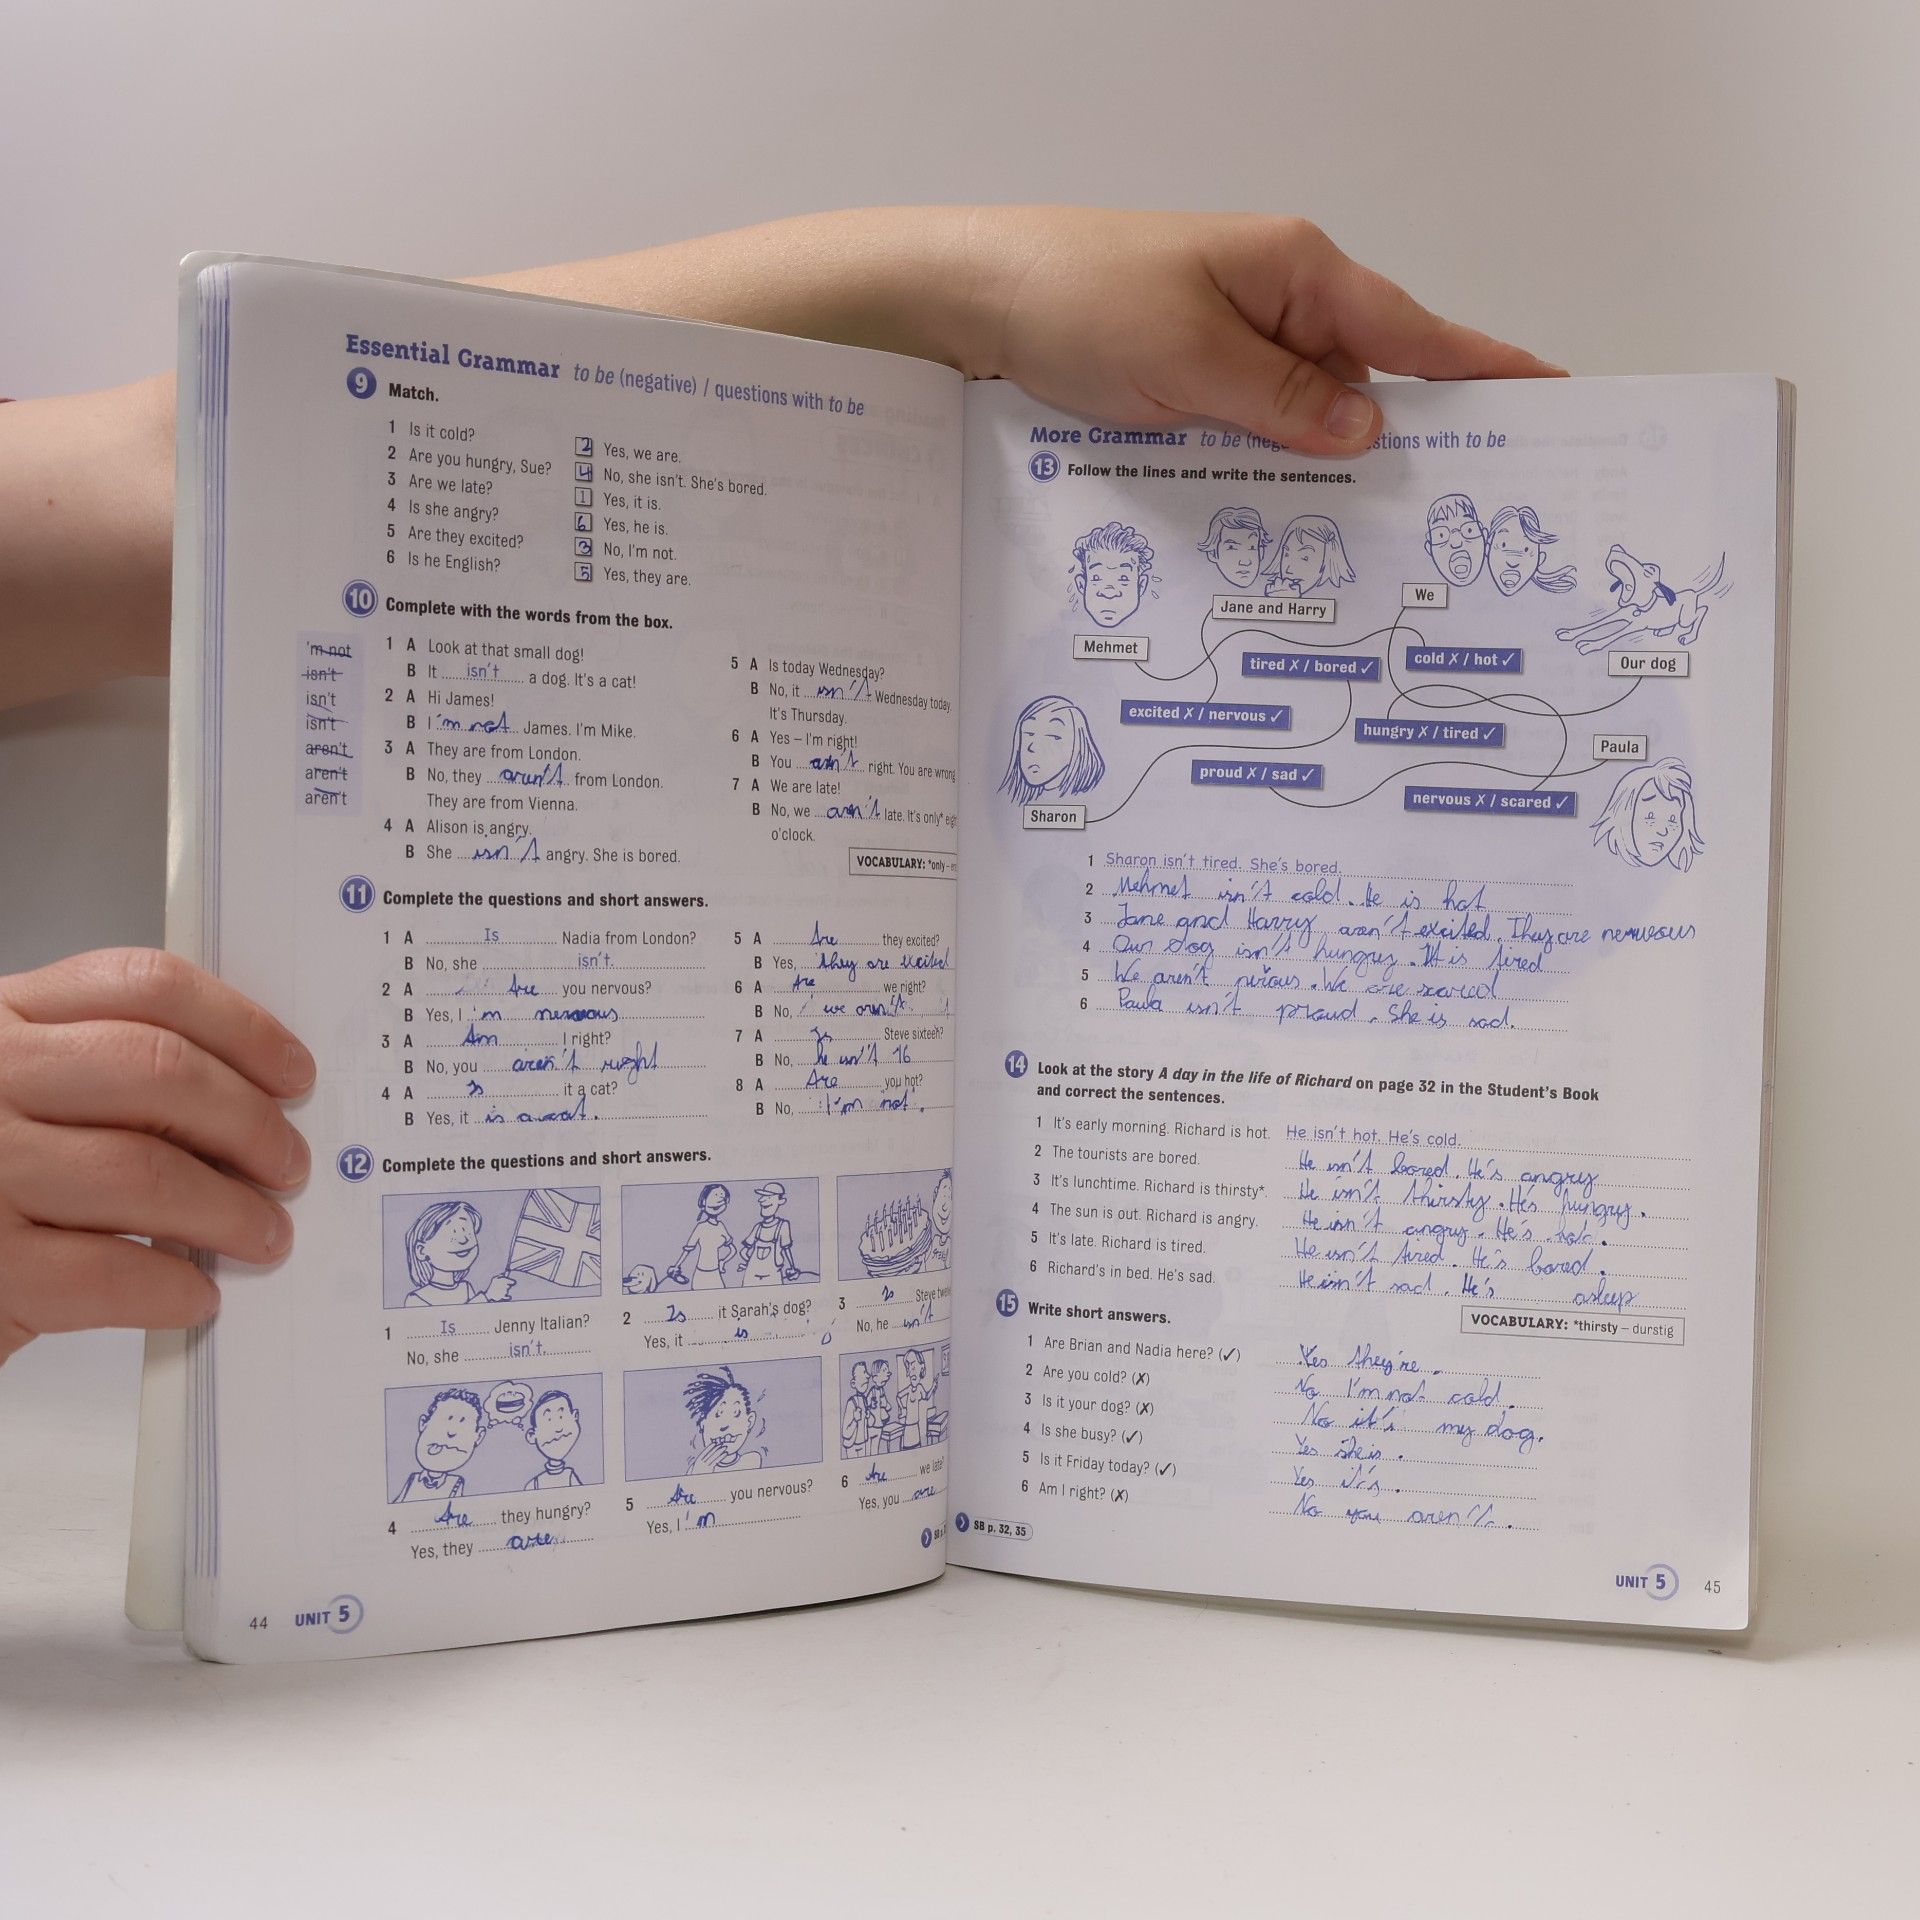 Essential Grammar to be (negative) / questions with to be
9 Match.
1 Is it cold?
2 Are you hungry, Sue?
3 Are we late?
4 Is she angry?
5 Are they excited?
6 Is he English?
2 Yes, we are.
4 No, she isn't. She's bored.
1 Yes, it is.
6 Yes, he is.
3 No, I'm not.
5 Yes, they are.
10 Complete with the words from the box.
'm not
isn't
isn't
isn't
aren't
aren't
aren't
1 A Look at that small dog!
B It isn't a dog. It's a cat!
2 A Hi James!
B I 'm not James. I'm Mike.
3 A They are from London.
B No, they aren't from London.
They are from Vienna.
4 A Alison is angry.
B She isn't angry. She is bored.
5 A Is today Wednesday?
B No, it isn't Wednesday today.
It's Thursday.
6 A Yes – I'm right!
B You right. You are wrong
7 A We are late!
B No, we aren't late. It's only*
o'clock.
VOCABULARY: *only –
11 Complete the questions and short answers.
1 A Is Nadia from London?
B No, she isn't.
2 A Are you nervous?
B Yes, I 'm
3 A Am I right?
B No, you aren't right
4 A Is it a cat?
B Yes, it is a cat.
5 A Are they excited?
B Yes, they are excited
6 A Are we right?
B No, we aren't.
7 A Is Steve sixteen?
B No, he isn't 16
8 A Are you hot?
B No, I'm not.
12 Complete the questions and short answers.
1 Is Jenny Italian?
No, she isn't.
2 Is it Sarah's dog?
Yes, it is
3 Is Steve
No, he isn't
4 Are they hungry?
Yes, they are
5 Are you nervous?
Yes, I 'm
6 Are we late?
Yes, you are
44 UNIT 5
More Grammar to be questions with to be
13 Follow the lines and write the sentences.
Mehmet
Jane and Harry
We
Our dog
tired ✗ / bored ✓
cold ✗ / hot ✓
excited ✗ / nervous ✓
hungry ✗ / tired ✓
Paula
proud ✗ / sad ✓
nervous ✗ / scared ✓
Sharon
1 Sharon isn't tired. She's bored.
2 Mehmet isn't cold. He is hot
3 Jane and Harry aren't excited. They are
4 Our dog isn't hungry. It is tired
5 We aren't We are scared
6 Paula isn't proud. She is sad.
14 Look at the story A day in the life of Richard on page 32 in the Student's Book
and correct the sentences.
1 It's early morning. Richard is hot. He isn't hot. He's cold.
2 The tourists are bored. He isn't bored. He's angry
3 It's lunchtime. Richard is thirsty*. He isn't thirsty. He's hungry.
4 The sun is out. Richard is angry. He isn't angry. He's hot.
5 It's late. Richard is tired. He isn't tired. He's bored.
6 Richard's in bed. He's sad. He isn't sad. He's asleep
VOCABULARY: *thirsty – durstig
15 Write short answers.
1 Are Brian and Nadia here? (✓) Yes they're.
2 Are you cold? (✗) No I'm not cold.
3 Is it your dog? (✗) No it's my dog.
4 Is she busy? (✓) Yes she is.
5 Is it Friday today? (✓) Yes it's.
6 Am I right? (✗) No you aren't.
SB p. 32, 35
UNIT 5 45